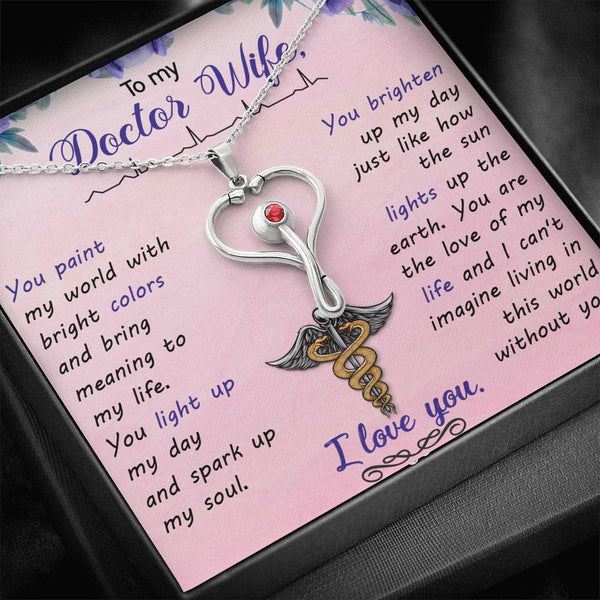 To my
Doctor Wife,
You paint
my world with
bright colors
and bring
meaning to
my life.
You light up
my day
and spark up
my soul.
You brighten
up my day
just like how
the sun
lights up the
earth. You are
the love of my
life and I can't
imagine living in
this world
without yo
I love you.